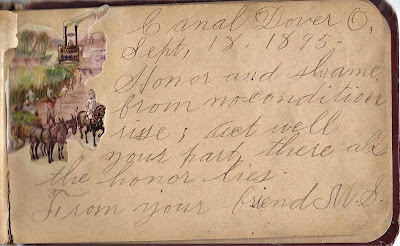 Canal Dover O,
Sept, 18, 1895-
Honor and shame
from no condition
rise; act well
your part, there all
the honor lies.
From your friend M. S.